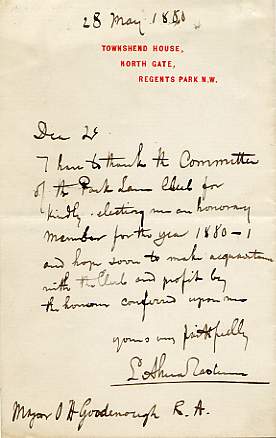 28 May 1880
TOWNSHEND HOUSE,
NORTH GATE,
REGENTS PARK N.W.
Dear Sir
I have to thank the Committee
of the Park Lane Club for
kindly electing me an honorary
member for the year 1880-1
and hope soon to make acquaintance
with the Club and profit by
the honour conferred upon me
yours very faithfully
L Alma Tadema
Mayor O H Goodenough R.A.